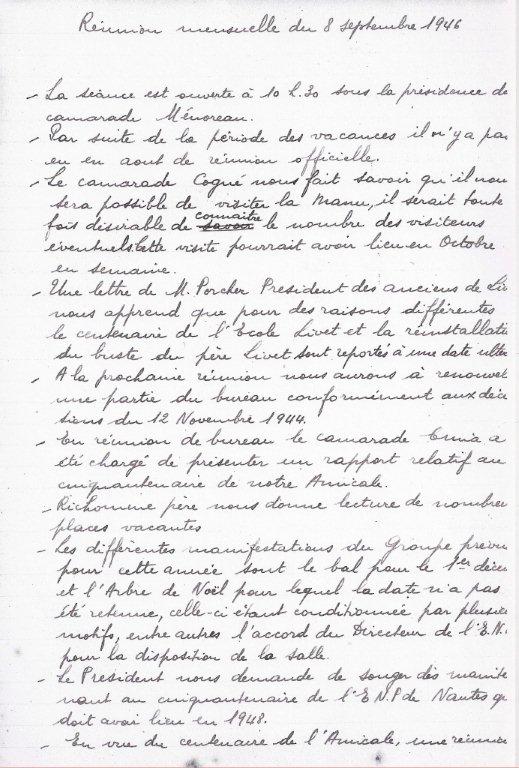 Réunion mensuelle du 8 septembre 1946
- La séance est ouverte à 10 h.30 sous la présidence de
camarade Ménoreau.
- Par suite de la période des vacances il n'y a pas
eu en aout de réunion officielle.
- Le camarade Cogné nous fait savoir qu'il nou
sera possible de visiter la Manu, il serait toute
fois désirable de savoir connaitre le nombre des visiteurs
éventuels. Cette visite pourrait avoir lieu en Octobre
en semaine.
- Une lettre de M. Porcher President des anciens de Liv
nous apprend que pour des raisons différentes
le centenaire de l'Ecole Livet et la réinstallati
du buste du père Livet sont reportés à une date ultér
- A la prochaine réunion nous aurons à renouvel
une partie du bureau conformément aux déci
sions du 12 Novembre 1944.
- En réunion de bureau le camarade a
été chargé de présenter un rapport relatif au
cinquantenaire de notre Amicale.
- Richomme père nous donne lecture de nombreu
places vacantes
- Les différentes manifestations du Groupe prévu
pour cette année sont le bal pour le 1er décem
et l'Arbre de Noël pour lequel la date n'a pas
été retenue, celle-ci étant conditionnée par plusieu
motifs, entre autres l'accord du Directeur de l'E.N.
pour la disposition de la salle.
- Le President nous demande de songer dès mainte
nant au cinquantenaire de l'E.N.P de Nantes qu
doit avoir lieu en 1948.
- En vue du centenaire de l'Amicale, une réunion